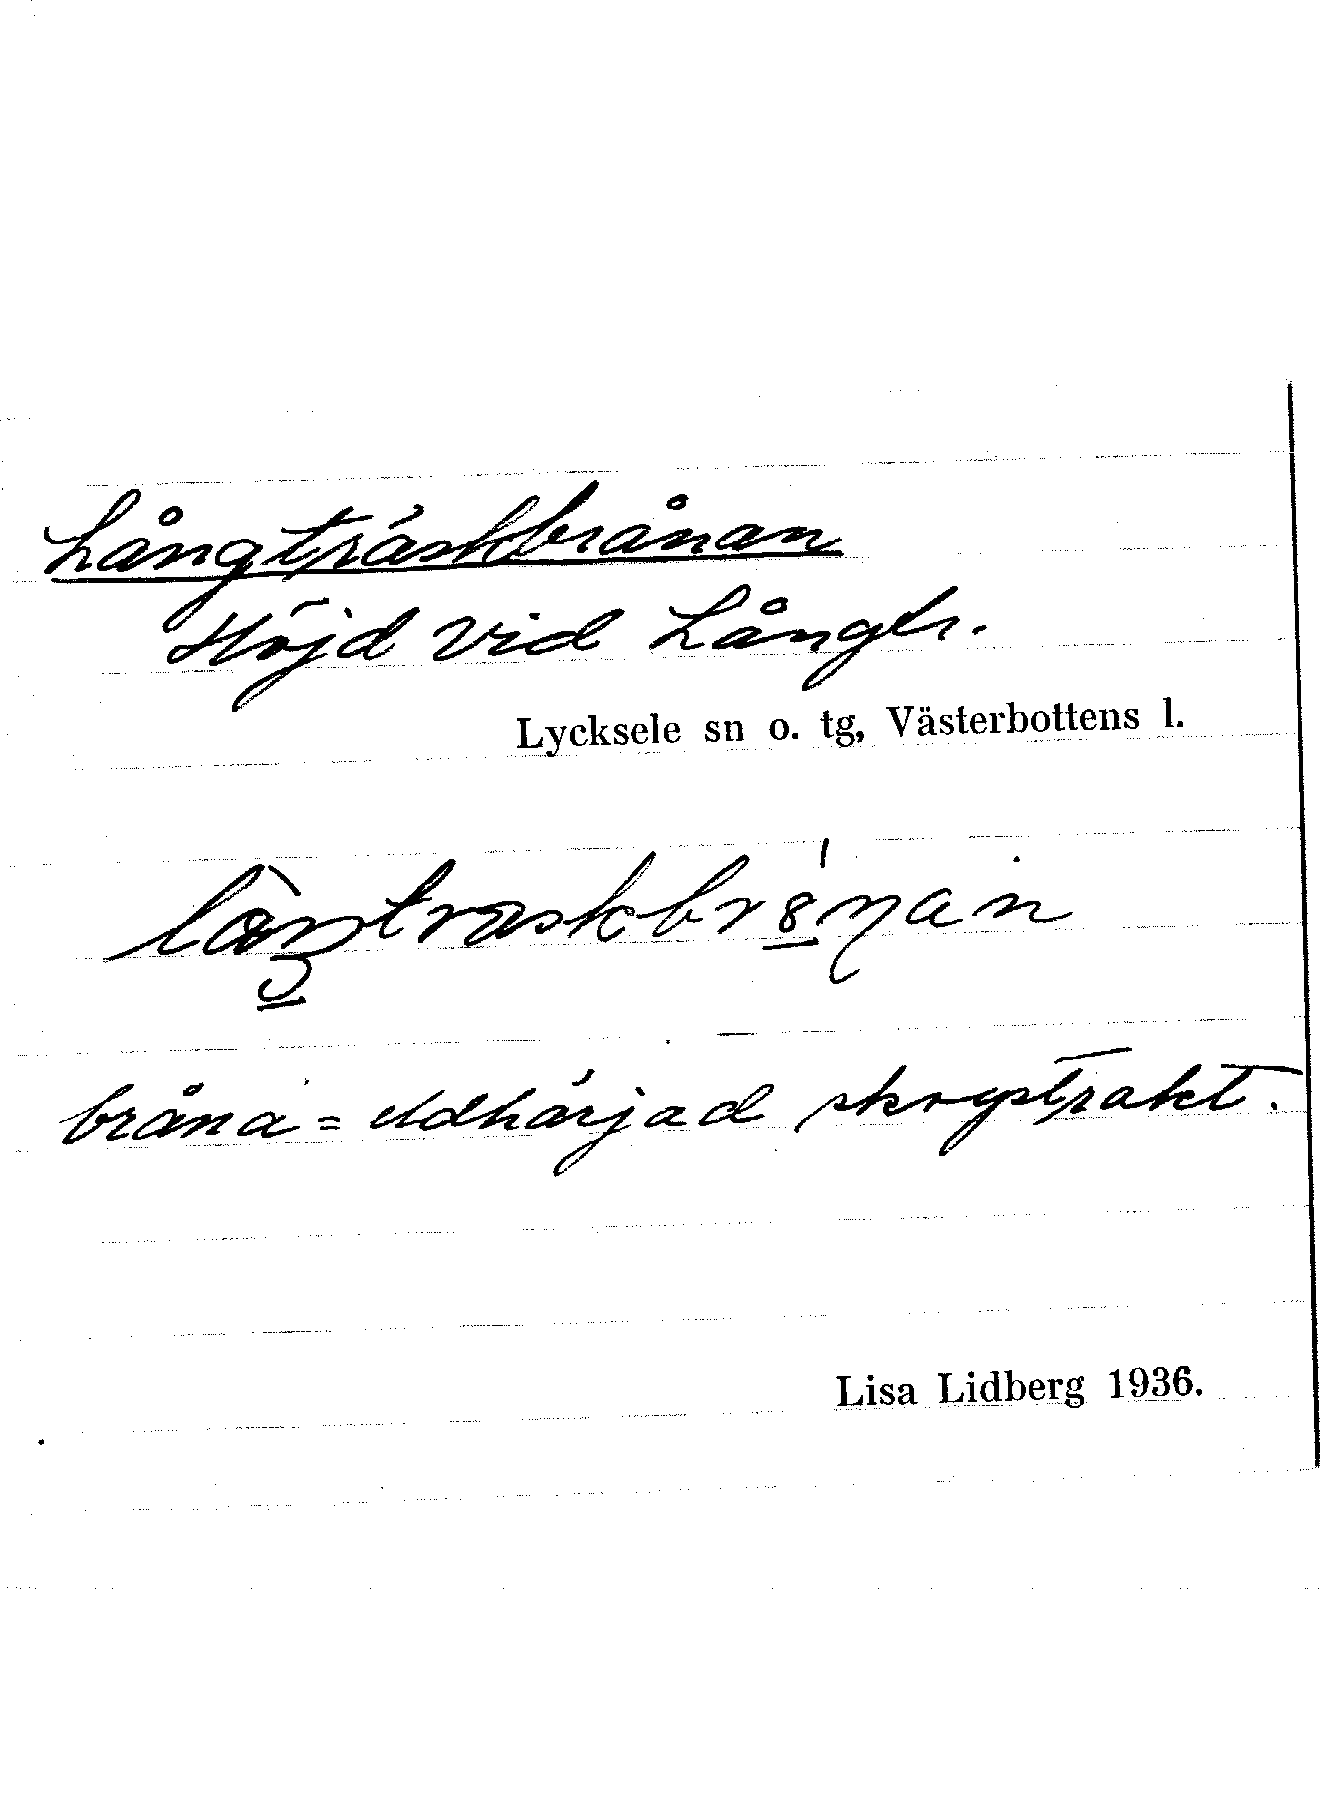 Långträskbrånan
Höjd vid Långtr.
Lycksele sn o. tg, Västerbottens l.
bråna = eldhärjad skogstrakt.
Lisa Lidberg 1936.